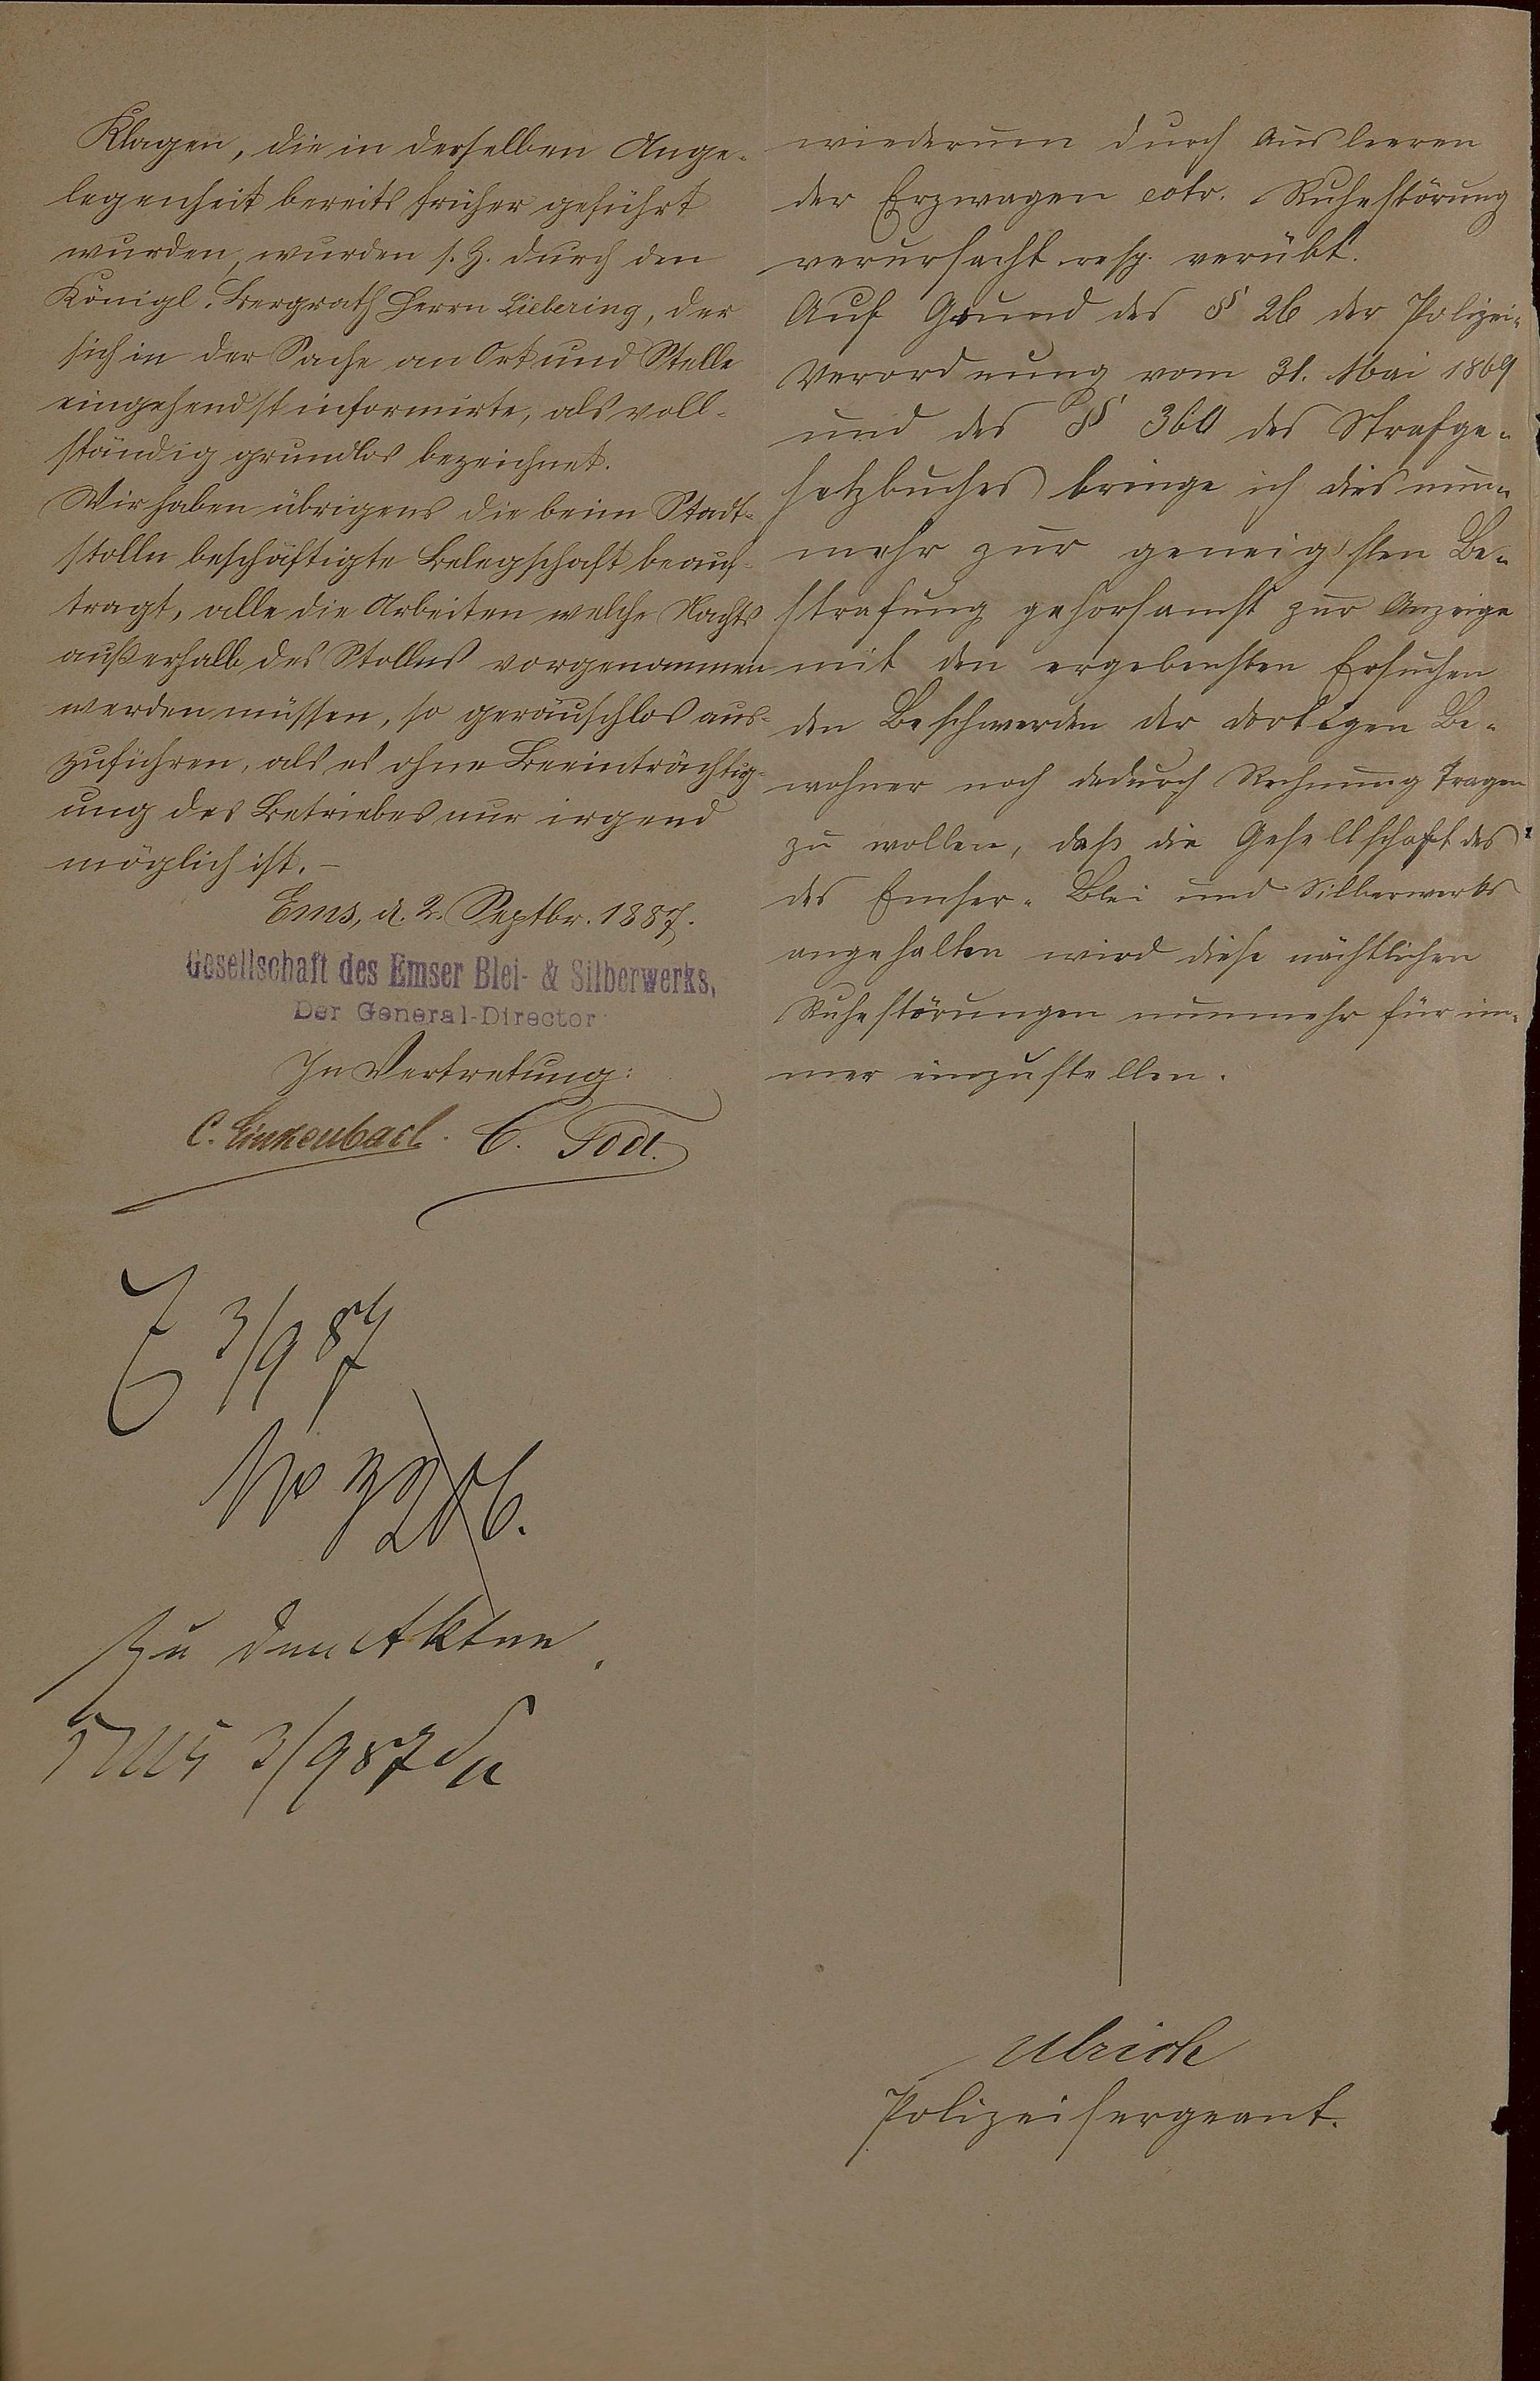 Klagen, die in derselben Ange-
legenheit bereits früher geführt
wurden, wurden s. Z. durch den
Königl. Bergrath Herrn Liebering, der
sich in der Sache an Ort und Stelle
eingehendst informirte, als voll-
ständig grundlos bezeichnet.
Wir haben übrigens die beim Stadt-
stolln beschäftigte Belegschaft beauf-
tragt, alle die Arbeiten welche Nachts
außerhalb des Stollns vorgenommen
werden müssen, so geräuschlos aus-
zuführen, als es ohne Beeinträchtig-
ung des Betriebes nur irgend
möglich ist. –
Ems, d. 2. Septbr. 1887.
Gesellschaft des Emser Blei- & Silberwerks,
Der General-Director
In Vertretung:
C. Linkenbach. C. Tod.
3/9 87
No
Zu den Akten.
Ems 3/9 87
wiederum durch Ausleeren
der Erzwagen Ruhestörung
verursacht resp. verübt.
Auf Grund des § 26 der Polizei-
Verordnung vom 31. Mai 1869
und des § 360 des Strafge-
setzbuches bringe ich dies nun-
mehr zur geneigsten Be-
strafung gehorsamst zur Anzeige
mit den ergebensten Ersuchen
den Beschwerden der dortigen Be-
wohner noch dadurch Rechnung tragen
zu wollen, daß die Gesellschaft des
des Emser- Blei und Silberwerks
angehalten wird diese nächtlichen
Ruhestörungen nunmehr für im-
mer einzustellen.
Ulrich
Polizeisergeant.